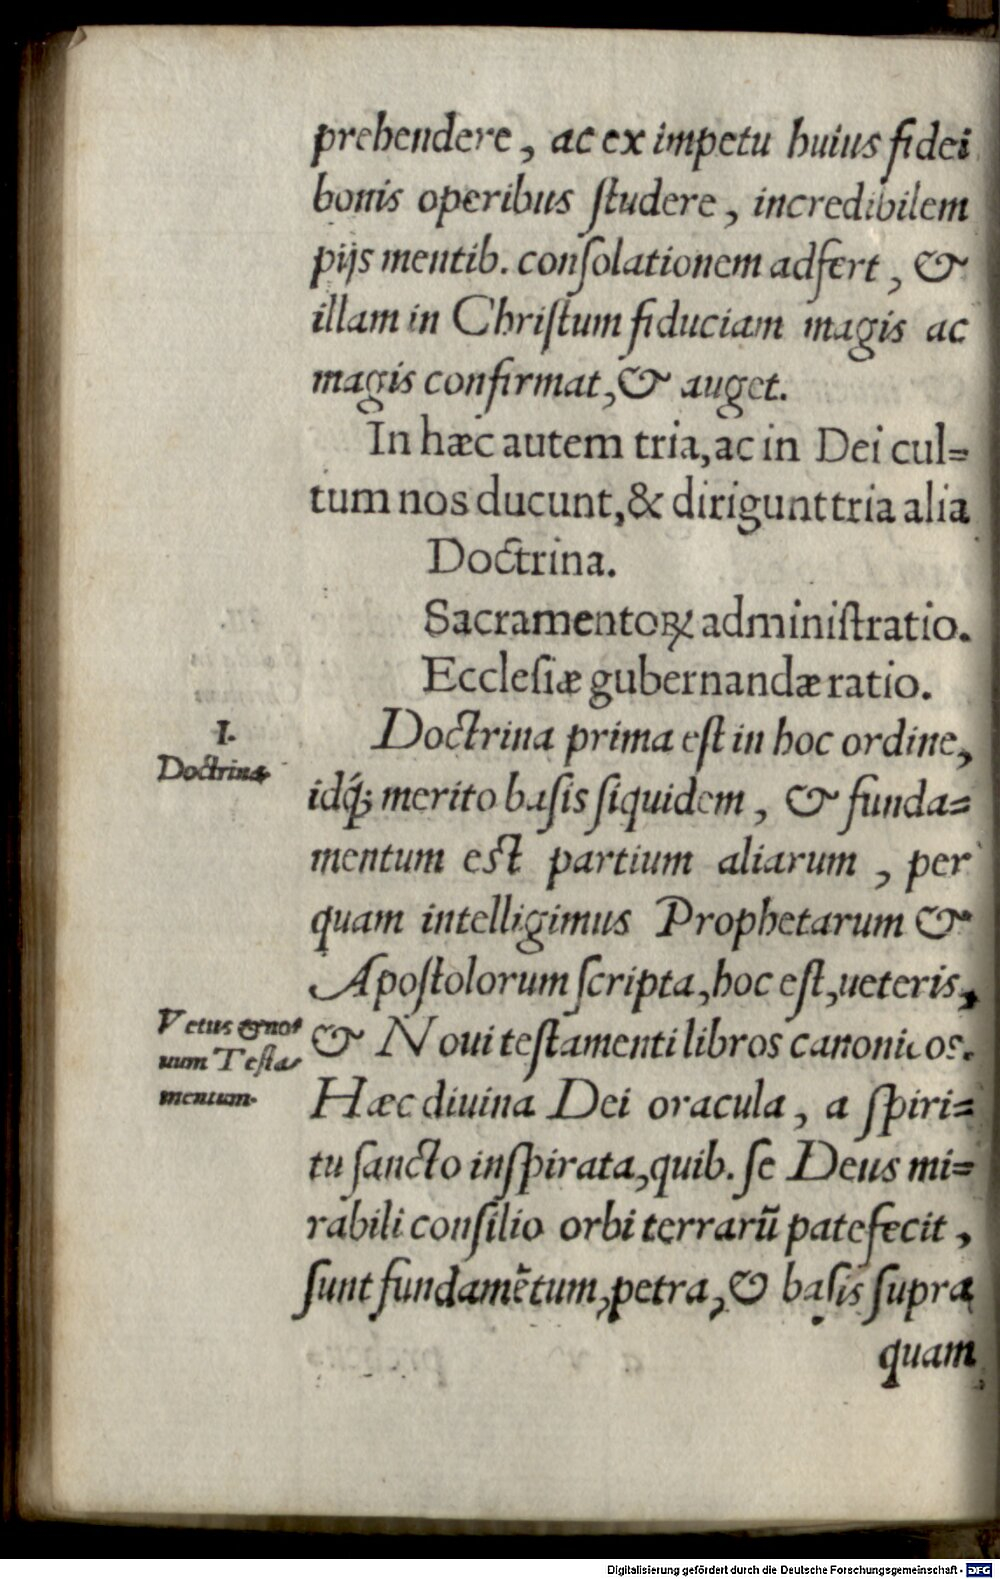 prehendere, ac ex impetu huius fidei
bonis operibus ſtudere, incredibilem
pijs mentib. conſolationem adfert, &
illam in Chriſtum fiduciam magis ac
magis confirmat, & auget.
In hæc autem tria, ac in Dei cul=
tum nos ducunt, & dirigunt tria alia
Doctrina.
Sacramentoꝝ adminiſtratio.
Eccleſiæ gubernandæ ratio.
I.
Doctrina
Doctrina prima eſt in hoc ordine,
idq́; merito baſis ſiquidem, & funda=
mentum eſt partium aliarum, per
quam intelligimus Prophetarum &
Apoſtolorum ſcripta, hoc eſt, ueteris,
Vetus & no=
uum Teſta=
mentum.
& Noui teſtamenti libros canonicos.
Hæc diuina Dei oracula, a ſpiri=
tu ſancto inſpirata, quib. ſe Deus mi=
rabili conſilio orbi terrarū patefecit,
ſunt fundamētum, petra, & baſis ſupra
quam
Digitalisierung gefördert durch die Deutsche Forschungsgemeinschaft - DFG